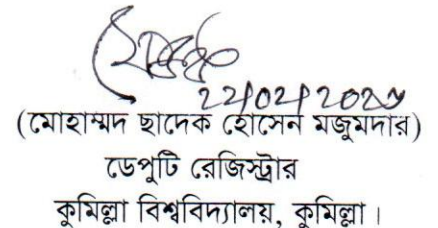 (মোহাম্মদ ছাদেক হোসেন মজুমদার)
ডেপুটি রেজিস্ট্রার
কুমিল্লা বিশ্ববিদ্যালয়, কুমিল্লা।